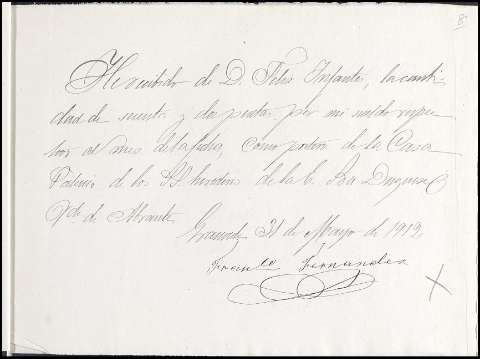 He recibido de D. Felix Infante, la canti
dad de
y dos pesetas por mi sueldo respec
tivo al mes de la fecha, como portero de la Casa
Palacio de los SS. herederos de la E. Sra Duquesa
Vda de Abrantes.
Granada 31 de Mayo de 1912
Fernandez